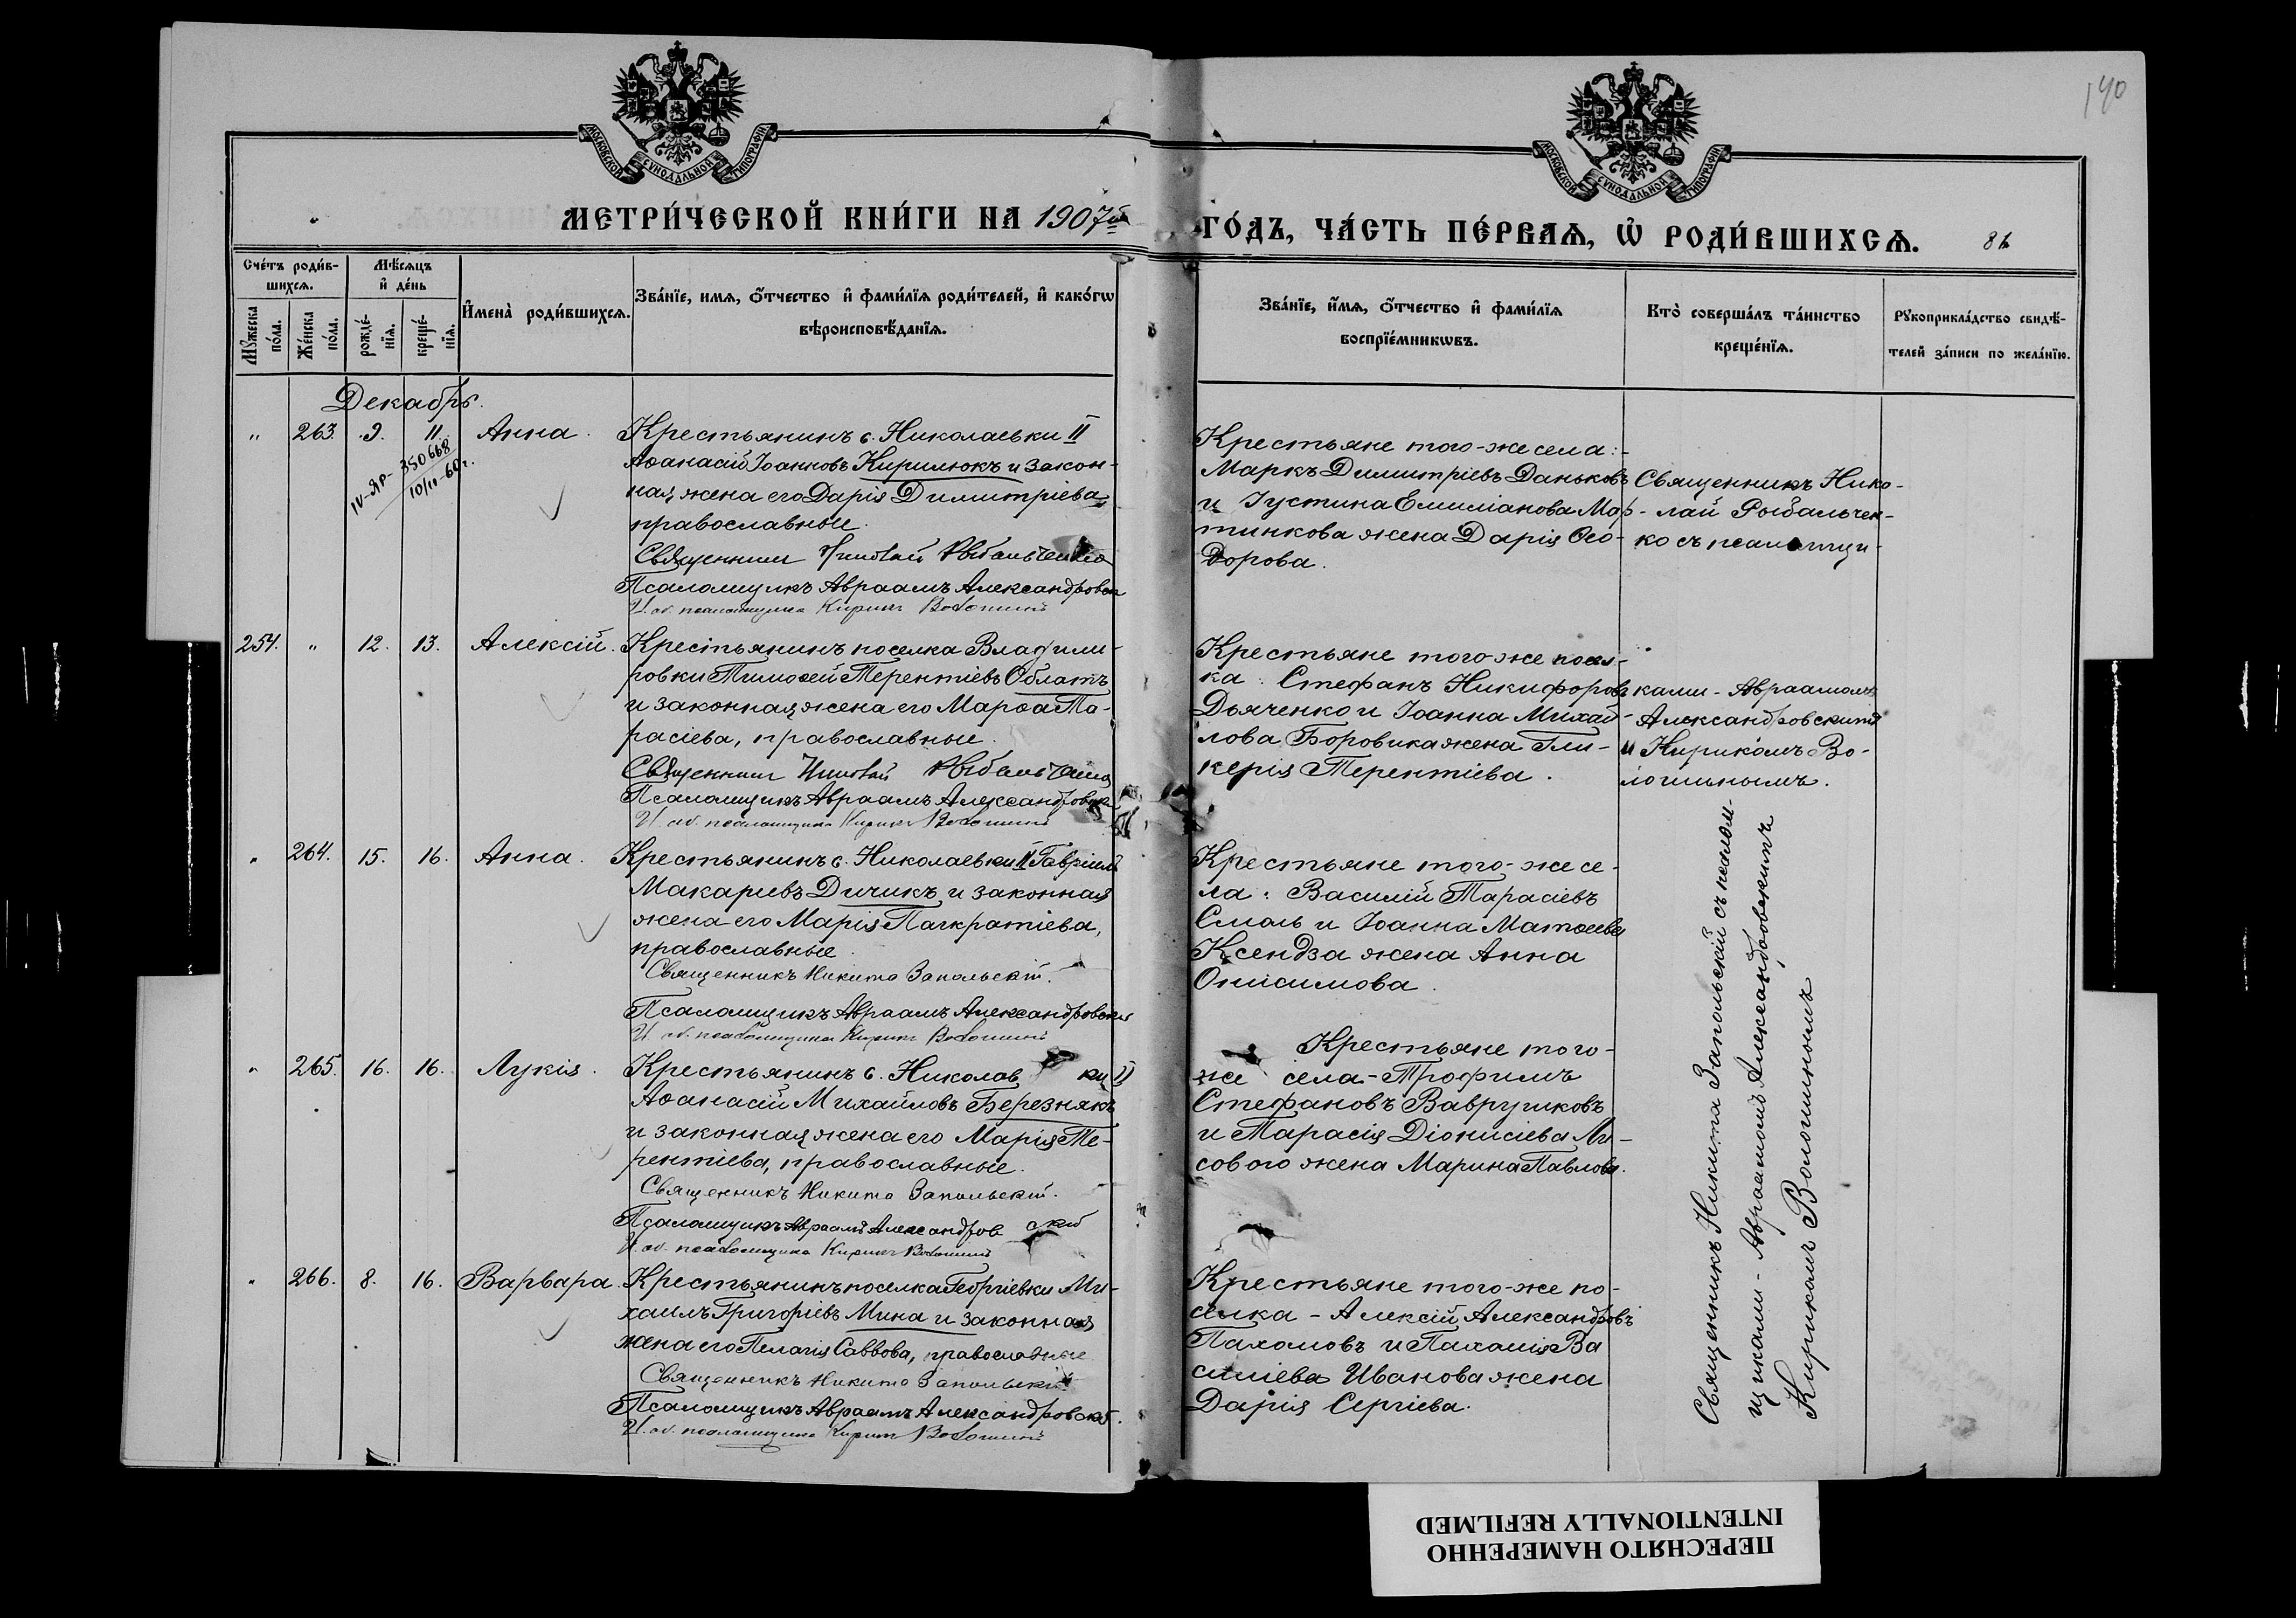 140
МОСКОВСКОЙ СУНОДАЛЬНОЙ ТИПОГРАФІИ
МОСКОВСКОЙ СУНОДАЛЬНОЙ ТИПОГРАФІИ
МЕТРИ́ЧЕСКОЙ КНИ́ГИ НА 1907й ГО́ДЪ, ЧА́СТЬ ПЕ́РВАѦ, Ѡ҆ РОДИ́ВШИХСѦ.
Сче́тъ роди́в-
шихсѧ.
Мꙋ́жеска по́ла.
Же́нска по́ла.
Мѣ́сѧцъ
и҆ де́нь
рожде́-
нїѧ.
креще́-
нїѧ.
И҆мена̀ роди́вшихсѧ.
Зва́нїе, имѧ, ѻ҆́тчество и҆ фами́лїѧ роди́телей, и҆ како́гѡ
вѣроисповѣ́данїѧ.
Зва́нїе, и҆́мѧ, ѻ҆́тчество и҆ фами́лїѧ
воспрїе́мникѡвъ.
Кто̀ соверша́лъ та́инство
креще́нїѧ.
Рꙋкоприкла́дство свидѣ́-
телей за́писи по жела́нїю.
Декабрь.
" 263. 9. 11. Анна.
IV-ЯР- 350668
10/II-60г.
Крестьянинъ с. Николаевки II
Аѳанасій Іоанновъ Кирилюкъ и закон-
ная жена его Дарія Димитріева
православные.
Священник Николай Рыбальченко
Псаломщикъ Авраамъ Александровск
И. об. псаломщика Кирикъ Волошинъ
Крестьяне того-же села:-
Маркъ Димитріевъ Даньковъ
и Іустина Емиліанова Мар-
тинкова жена Дарія Ѳео-
дорова.
Священникъ Нико-
лай Рыбальчен-
ко съ псаломщи-
254. " 12. 13. Алексій.
Крестьянинъ поселка Владими-
ровки Тимоѳей Терентіевъ Облатъ
и законная жена его Марѳа Та-
расіева, православные.
Священник Николай Рыбальченко
Псаломщикъ Авраамъ Александровск
И. об. псаломщика Кирикъ Волошинъ
Крестьяне того-же посел-
ка: Стефанъ Никифоровъ
Дьяченко и Іоанна Михай-
лова Боровика жена Гли-
керія Терентіева.
ками - Авраамомъ
Александровскимъ
и Кирикомъ Во-
лошинымъ.
" 264. 15. 16. Анна.
Крестьянинъ с. Николаевки II Гавріилъ
Макаріевъ Дичикъ и законная
жена его Марія Панкратіева,
православные.
Священникъ Никита Запольскій.
Псаломщикъ Авраамъ Александровскій
И. об. псаломщика Кирикъ Волошинъ
Крестьяне того-же се-
ла: Василій Тарасіевъ
Смаль и Іоанна Матѳеева
Ксендза жена Анна
Онисимова.
" 265. 16. 16. Лукія.
Крестьянинъ с. Николаев ки II
Аѳанасій Михайловъ Березнякъ
и законная жена его Марія Те-
рентіева, православные.
Священникъ Никита Запольскій.
Псаломщикъ Авраамъ Александров скій
И. об. псаломщика Кирикъ Волошинъ
Крестьяне того-
же села - Трофимъ
Стефановъ Ваврушковъ
и Тарасія Діонисіева Ли-
сового жена Марина Павлова.
" 266. 8. 16. Варвара.
Крестьянинъ поселка Георгіевки Ми-
хаилъ Григоріевъ Мина и законная
жена его Пелагія Саввова, православные
Священникъ Никита Запольскій
Псаломщикъ Авраамъ Александровскій.
И. об. псаломщика Кирикъ Волошинъ
Крестьяне того-же по-
селка - Алексій Александровъ
Пахомовъ и Пахомія Ва
силіева Иванова жена
Дарія Сергіева.
Священникъ Никита Запольскій съ псалом-
щиками - Авраамомъ Александровскимъ
Кирикомъ Волошинымъ
ПЕРЕСНЯТО НАМЕРЕННО
INTENTIONALLY REFILMED